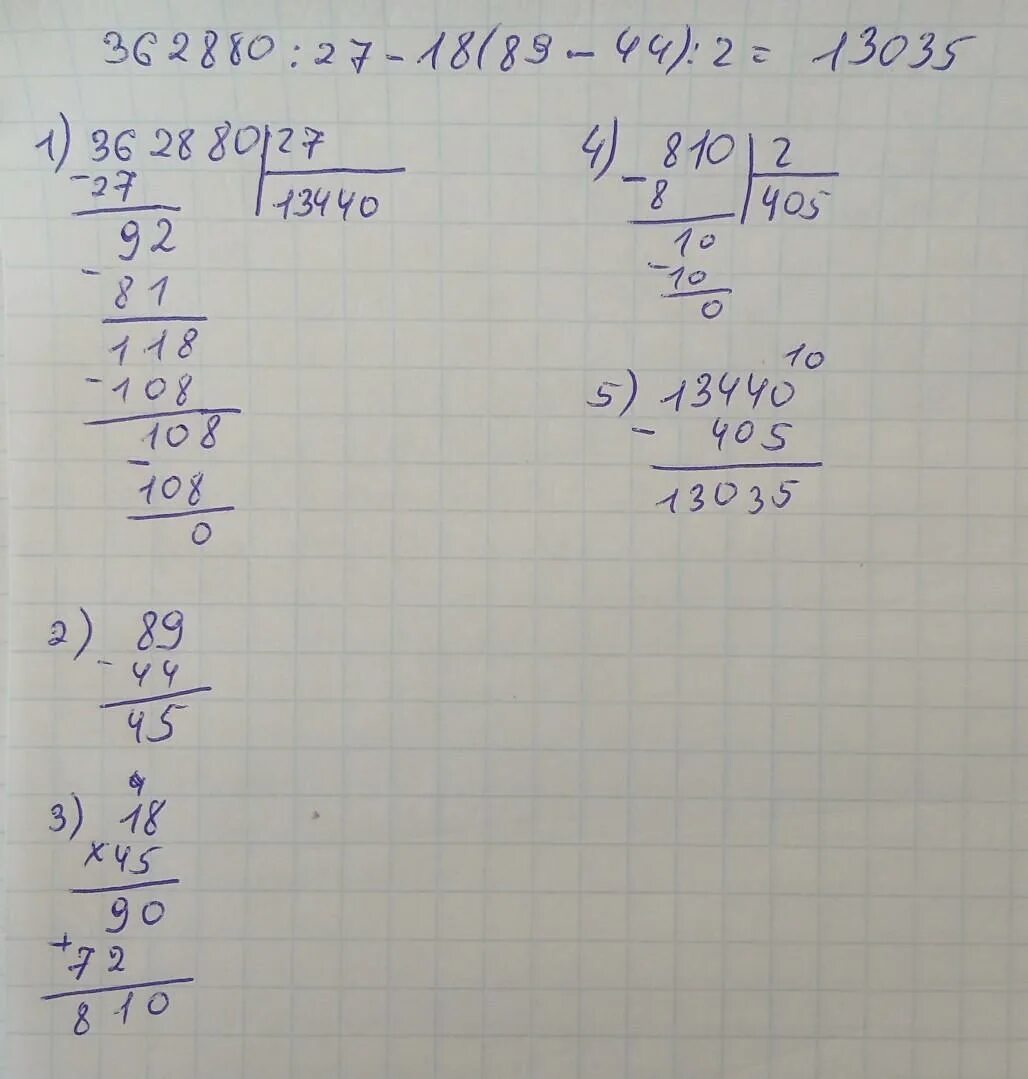 362880:27-18(89-44):2= 13035
1) 362880|27
-27
13440
92
-81
118
-108
108
-108
0
2) 89
-44
45
4
3) 18
×45
90
+72
810
4) 810|2
-8
405
10
-10
0
10
5) 13440
-405
13035